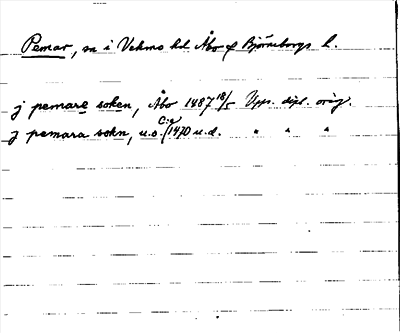 Pemar, sn i Vehmo hd Åbo o Björneborgs l.
j pemare soken, Åbo 1487 18/5 Upps. dipl. orig.
j pemara sokn, u.o. (Ca 1470 u.d. " " "